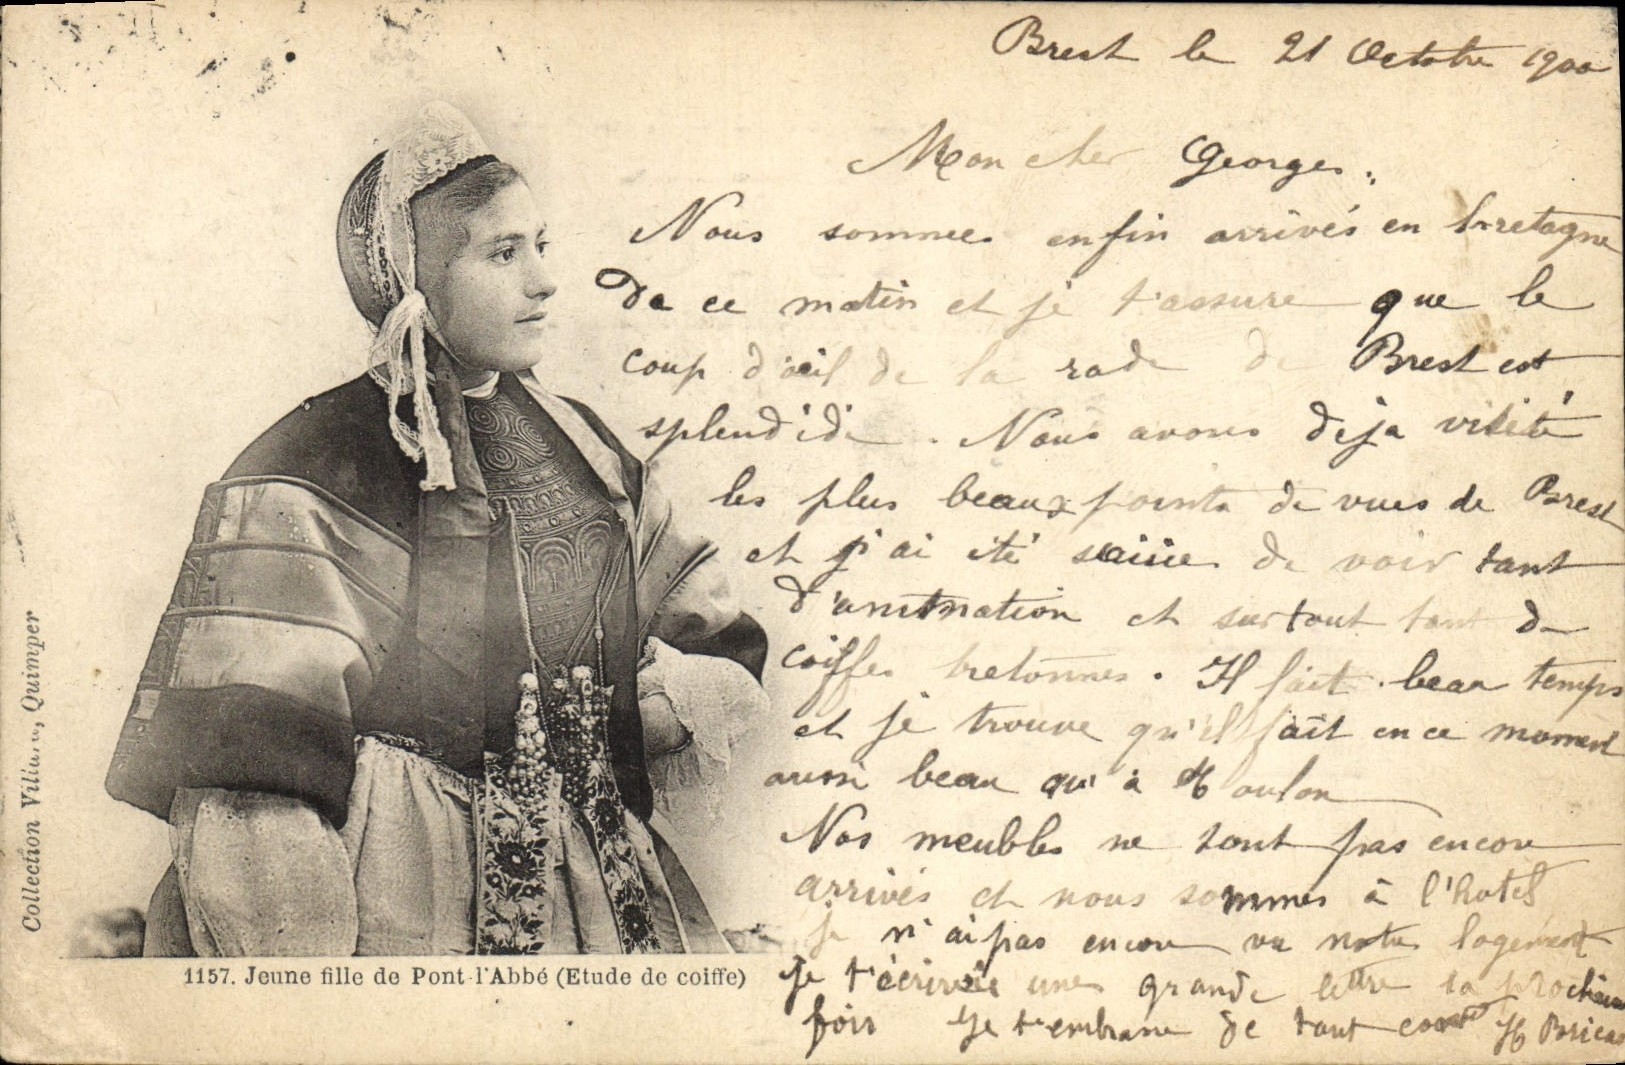 Brest le 21 Octobre 1900
Mon cher Georges.
Nous sommes enfin arrivés en bretagne
De ce matin et je t'assure que le
coup d'œil de la rade de Brest est
splendide. Nous avons deja visité
les plus beaux points de vues de Brest
et j'ai été saisie de voir tant
d'animation et surtout tant de
coiffes bretonnes. Il fait beau temps
et je trouve qu'il fait en ce moment
aussi beau qu'à Toulon
Nos meubles ne sont pas encore
arrivés et nous sommes à l'hotel
je n'ai pas encore vu notre logement
Je t'écrirai une grande lettre la prochaine
fois Je t'embrasse de tout cœur H
1157. Jeune fille de Pont-l'Abbé (Etude de coiffe)
Collection Villard, Quimper